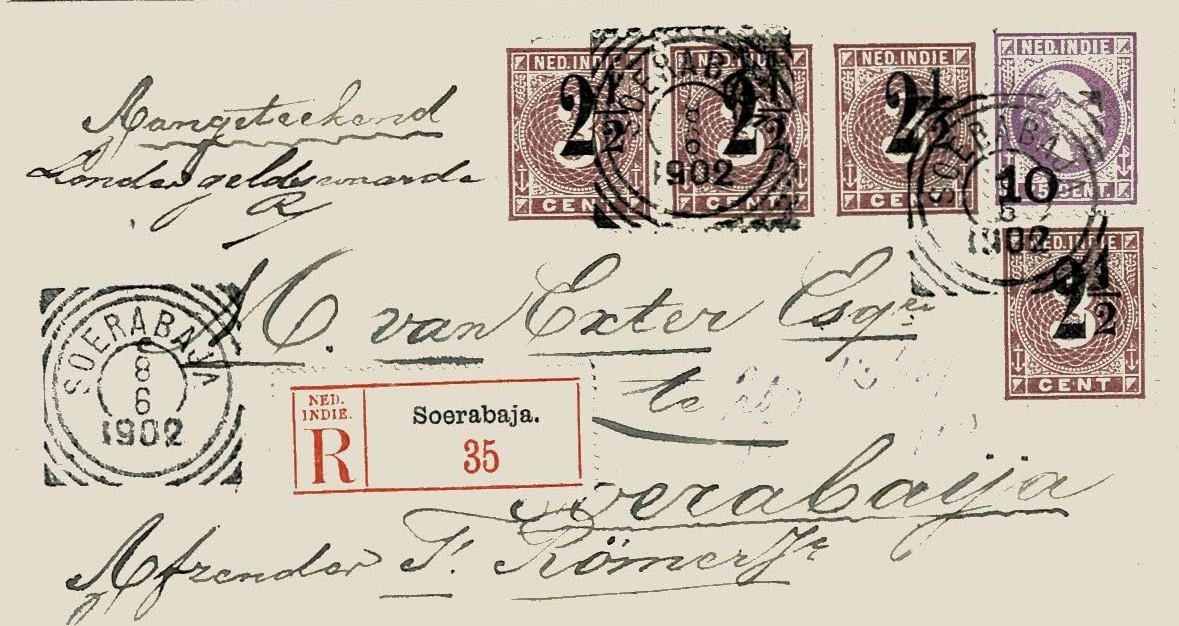 Aangeteekend
Zonder geldswaarde
R
NED. INDIE
2 1/2
CENT
NED. INDIE
2 1/2
CENT
NED. INDIE
2 1/2
CENT
NED. INDIE
10
15 CENT.
NED. INDIE
2 1/2
CENT
SOERABAJA
8
6
1902
SOERABAJA
6
1902
SOERABAJA
8
6
1902
van Exter Esqre
te
Soerabaija
NED.
INDIE.
R
Soerabaja.
35
Afzender Römer Jr